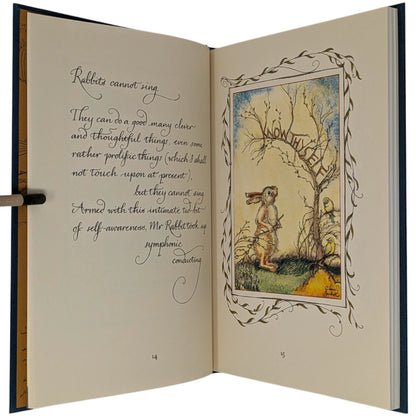 Rabbits cannot sing
They can do a good many clever
and thoughtful things, even some
rather prolific things (which I shall
not touch upon at present),
but they cannot sing.
Armed with this intimate tid-bit
of self-awareness, Mr Rabbit took up
symphonic
conducting.
14
KNOW THYSELF
15